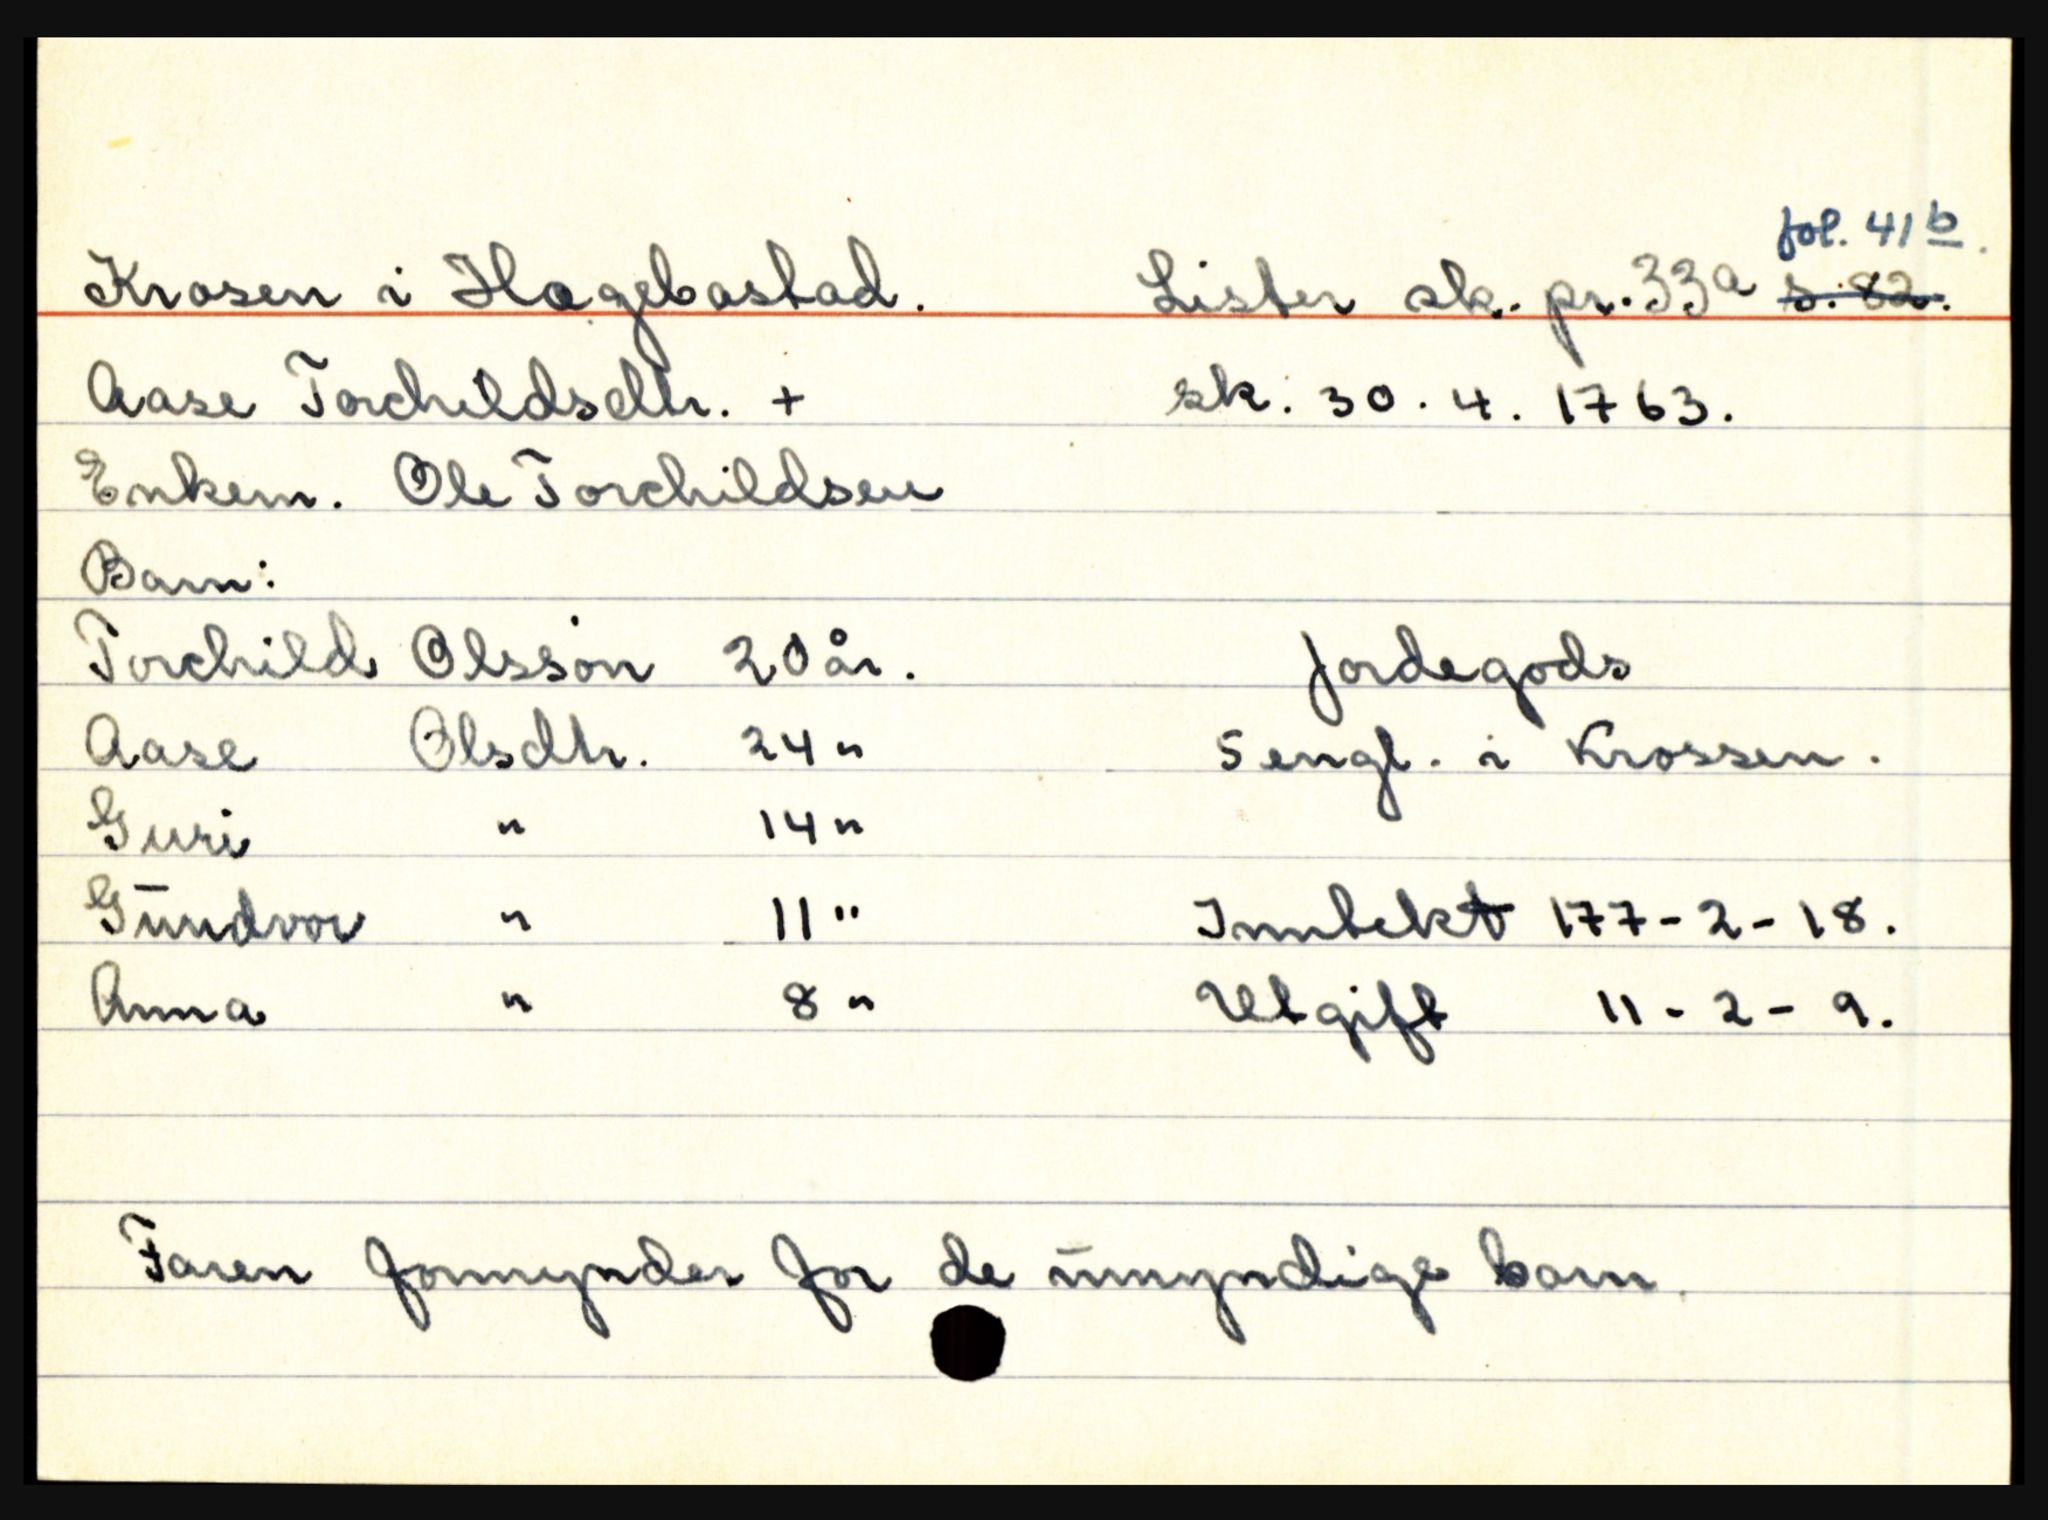 fol. 41 b.
Krosen i Hægebostad. Lister sk. pr. 33a s. 82.
Aase Torchildsdtr. + sk. 30.4.1763.
Enkem. Ole Torchildsen
Barn:
Torchild Olssøn 20 år. Jordegods
Aase Olsdtr. 24 " 5 engl. i Krossen.
Guri " 14 "
Gundvor " 11 " Inntekt 177-2-18.
Anna " 8 " Utgift 11-2-9.
Faren formynder for de umyndige barn.